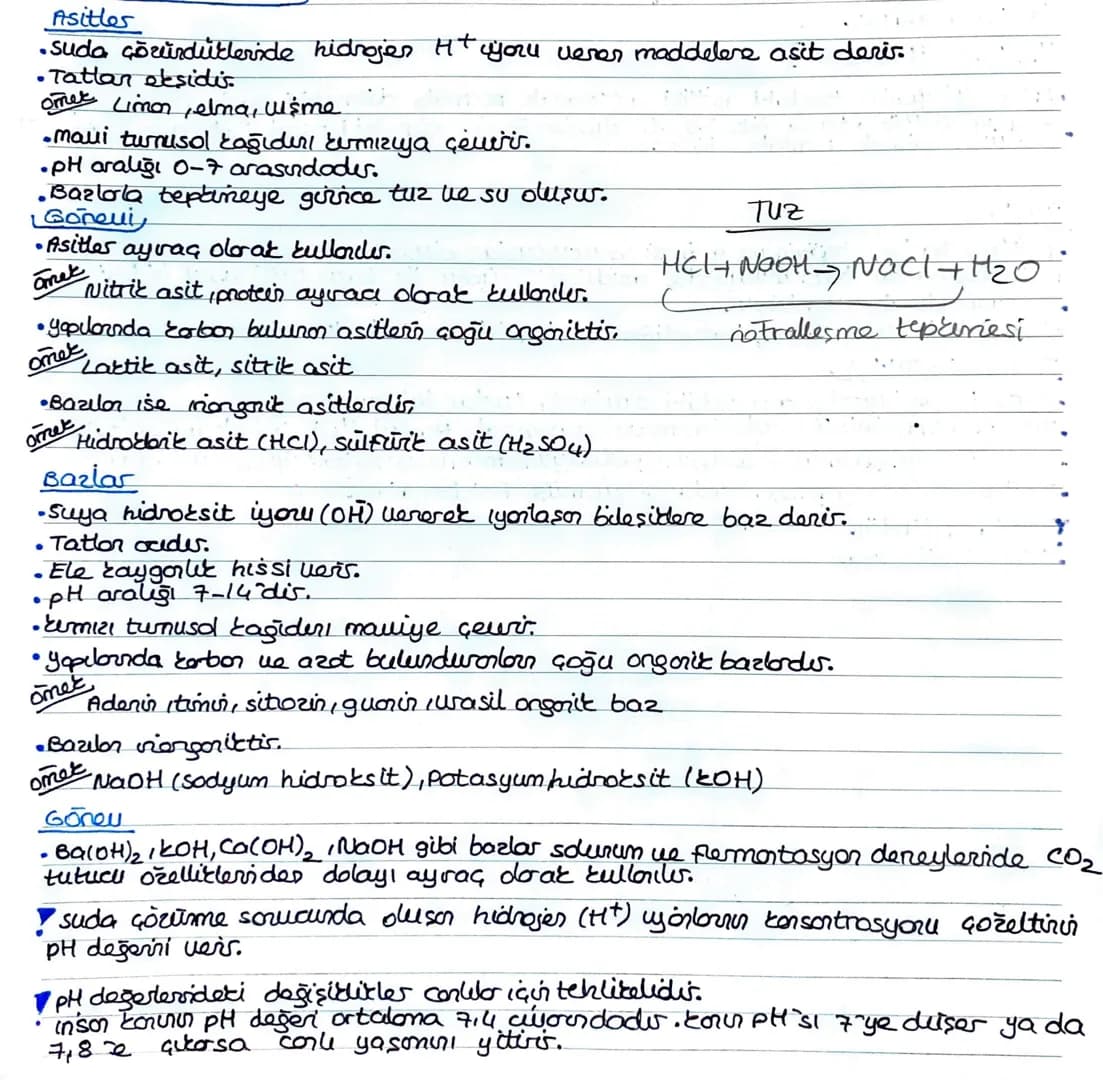 Asitler
• suda çözündüklerinde hidrojen H+ iyonu veren maddelere asit denir.
• Tatları ekşidir.
örnek Limon, elma, vişne
• mavi turnusol kağıdını kırmızıya çevirir.
• pH aralığı 0-7 arasındadır.
• Bazlarla tepkimeye girince tuz ve su oluşur.
Görevi
• Asitler ayıraç olarak kullanılır.
örnek Nitrik asit, protein ayıracı olarak kullanılır.
• yapılarında karbon bulunan asitlerin çoğu organiktir.
örnek Laktik asit, sitrik asit
• Bazıları ise inorganik asitlerdir,
örnek Hidroklorik asit (HCl), sülfürik asit (H2SO4)
TUZ
HCl + NaOH → NaCl + H2O
nötralleşme tepkimesi
Bazlar
• Suya hidroksit iyonu (OH-) vererek iyonlaşan bileşiklere baz denir.
• Tatları acıdır.
• Ele kayganlık hissi verir.
• pH aralığı 7-14'dir.
• kırmızı turnusol kağıdını maviye çevirir.
• yapılarında karbon ve azot bulunduranların çoğu organik bazlardır.
örnek Adenin, timin, sitozin, guanin, urasil organik baz
• Bazıları inorganiktir.
örnek NaOH (sodyum hidroksit), Potasyum hidroksit (KOH)
Görev
• Ba(OH)2, KOH, Ca(OH)2, NaOH gibi bazlar solunum ve fermantasyon deneyleride CO2
tutucu özelliklerinden dolayı ayıraç olarak kullanılır.
suda çözünme sonucunda oluşan hidrojen (H+) iyonlarının konsantrasyonu çözeltinin
pH değerini verir.
pH değerlerindeki değişiklikler canlılar için tehlikelidir.
• insan kanının pH değeri ortalama 7,4 civarındadır. kanın pH'sı 7'ye düşer ya da
7,8'e çıkarsa canlı yaşamını yitirir.